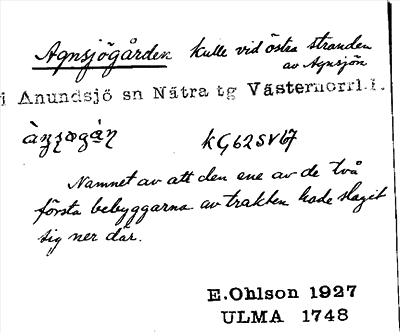 Agnsjögården kulle vid östra stranden
av Agnsjön
i Anundsjö sn Nätra tg Västernorrl.l.
kG62SV67
Namnet av att den ene av de två
första bebyggarna av trakten hade slagit
sig ner där.
E.Ohlson 1927
ULMA 1748